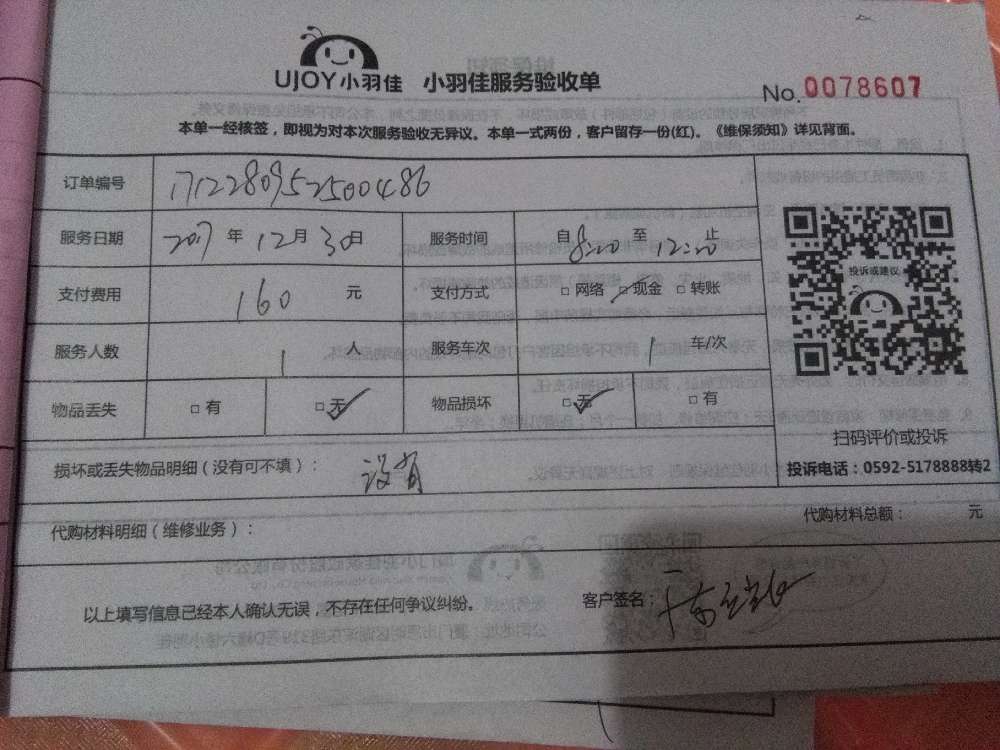 UJOY小羽佳 小羽佳服务验收单 No.0078607
本单一经核签，即视为对本次服务验收无异议。本单一式两份，客户留存一份(红)。《维保须知》详见背面。
订单编号 1712280952500486
服务日期 2017年12月30日 服务时间 自8:20至12:20止
支付费用 160元 支付方式 □网络 □现金 □转账
服务人数 1人 服务车次 1车/次
物品丢失 □有 □无 物品损坏 □无 □有
投诉或建议
扫码评价或投诉
投诉电话：0592-5178888转2
损坏或丢失物品明细（没有可不填）： 没有
代购材料明细（维修业务）： 代购材料总额： 元
以上填写信息已经本人确认无误，不存在任何争议纠纷。 客户签名：